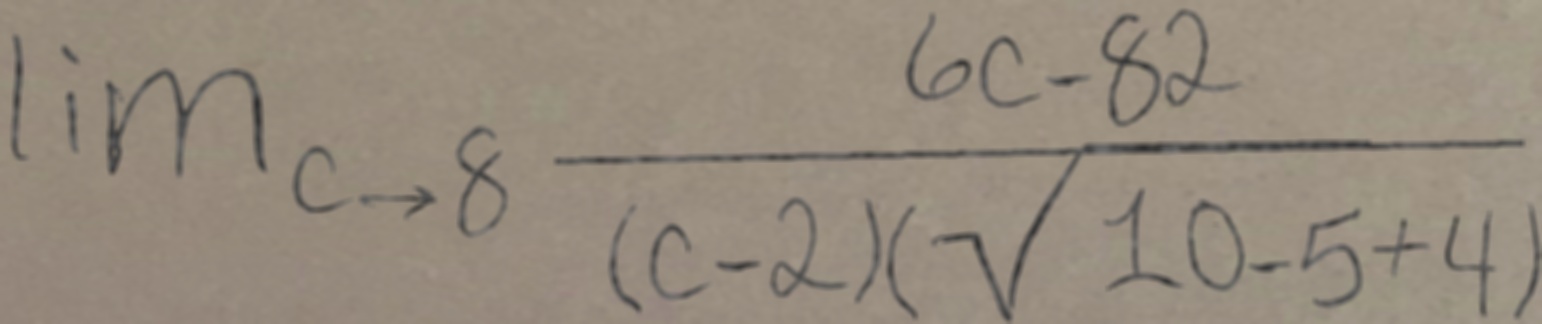 lim_{c→8} \frac{6c-82}{(c-2)(\sqrt{10-5+4})}